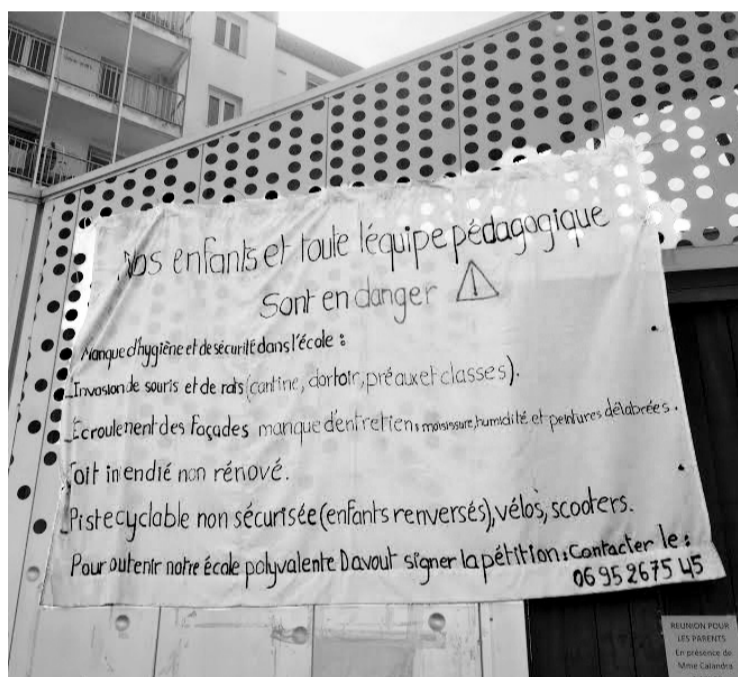 Nos enfants et toute l'équipe pédagogique
Sont en danger ⚠
Manque d'hygiène et de sécurité dans l'école :
_Invasion de souris et de rats (cantine, dortoir, préaux et classes).
_Ecroulement des façades manque d'entretien, moisissure, humidité et peintures délabrées.
Toit inendié non rénové.
_Piste cyclable non sécurisée (enfants renversés), vélos, scooters.
Pour outenir notre école polyvalente Davout signer la pétition : Contacter le :
06 95 26 75 45
REUNION POUR
LES PARENTS
En présence de
Mme Calandra